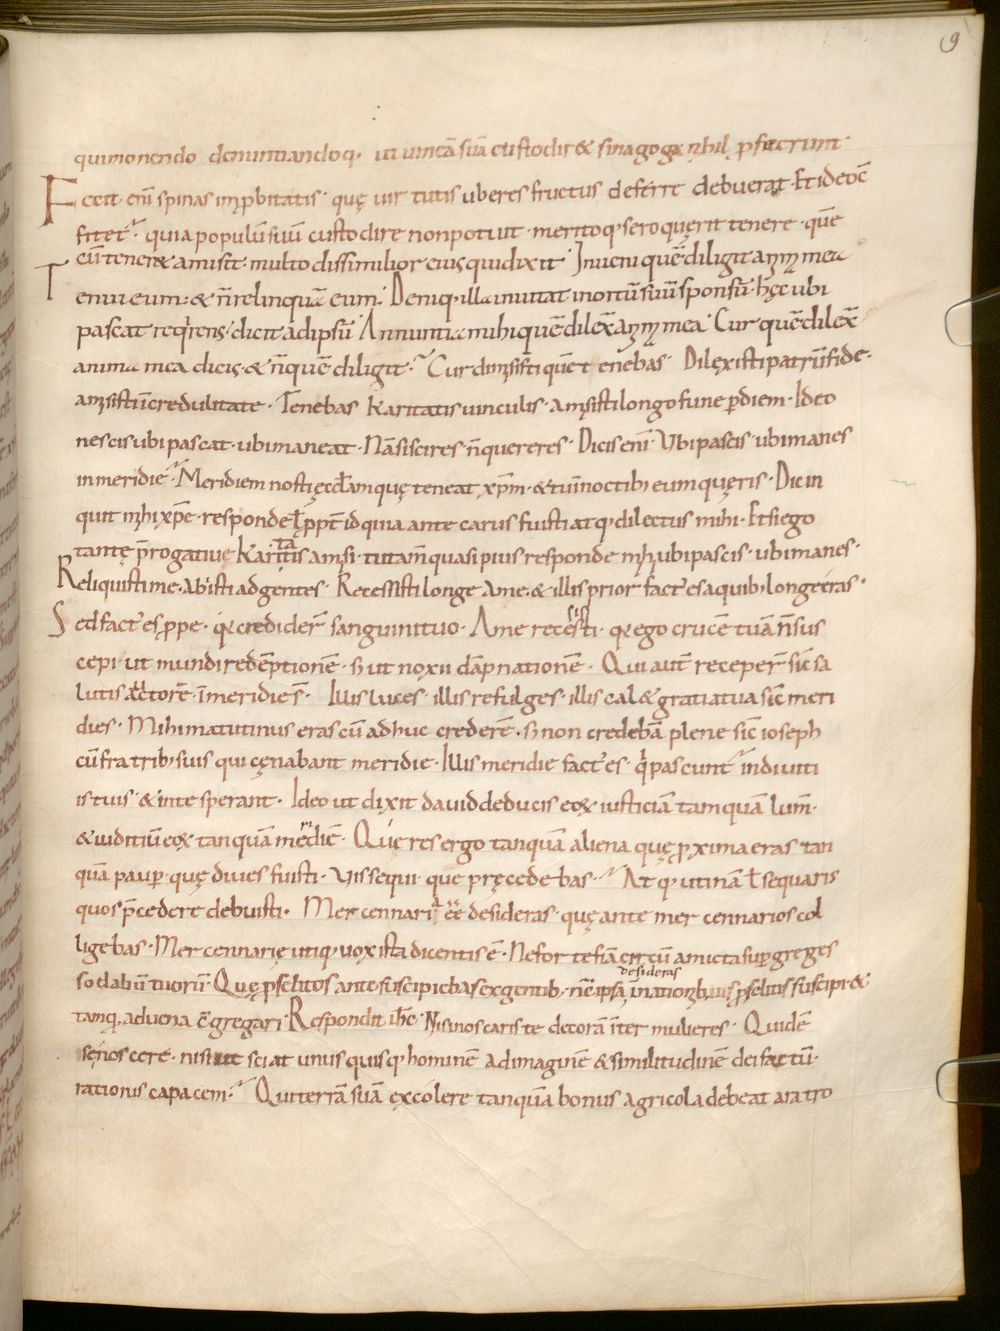 9
qui monendo denuntiandoq; ut uineā suā custodir& sinagoga nihil pfecerunt·
Fecit enī spinas inpbitatis· quę uirtutis uberes fructus deferre debuerat· Et ideo cō
fitet᷑· quia populū suū custodire non potuit· meritoq; sero querit tenere· quē
cū teneret amisit· multo dissimilior eius qui dixit Inueni quē diligit anima mea
Tenui eum· & ñ relinquā eum· Deniq; illa inuitat in ortū suū sponsū· hęc ubi
pascat reqirens· dicit ad ipsū Annuntia mihi quē dilex̄ anima mea· Cur quē dilex̄
anima mea dicis· & ñ quē diligit· Cur dimisisti quē tenebas· Dilexisti patrū fidē·
amisisti incredulitate· Tenebas karitatis uinculis· Amisisti longo fune pdiem· Ideo
nescis ubi pascat· ubi maneat· Nā si scires· ñ quereres· Dicis enī· Vbi pascis· ubi manes
in meridie· Meridiem nosti ęccłam quę teneat xp̄m· & tu in noctib; eum quęris· Dic in
quit mihi xp̄e· responde ł ppt̄ id quia ante carus fuisti atq; dilectus mihi· Et si ego
tantę p̄rogatiuę karitatis amisi· tu tam̄ quasi pius responde mihi ubi pascis· ubi manes·
Reliquisti me· Abisti ad gentes· Recessisti longe a me· & illis prior fact᷑ es a quib; longe eras·
Sed fact᷑ es ppe· q̄ crediderṝ sanguini tuo· A me recessisti· q̄ ego crucē tuā ñ sus
cepi· ut mundi redēptionē· s; ut noxii dāpnationē· Qui aut̄ receperṝ sic̄ sa
lutis auctorē· in meridie s̄· Illis luces· illis refulges· illis cal& gratia tua sic̄ meri
dies· Mihi matutinus eras cū adhuc crederē· s; non credebā plene sic̄ ioseph
cū fratrib; suis qui cęnabant meridie· Illis meridie fact᷑ es· qi pascunt᷑ in diuiti
is tuis· & in te sperant· Ideo ut dixit dauid deducis eoꝝ iusticiam tamquā lum̄·
& iuditiū eoꝝ tanquā meridiē· Quę res ergo tanquā aliena quę pxima eras tan
quā paup· quę diues fuisti· Vis sequi· que pręcedebas· Atq; utinā ł sequaris
quos p̄cedere debuisti· Mercennaria eē desideras· quę ante mercennarios col
ligebas· Mercennarię utiq; uox ista dicentis ē· Ne forte fiā circū amicta sup greges
sodaliū tuorū· Quę pselitos ante suscipiebas ex gentib; nc̄ ipsa in nationib; uis pselitis suscipi &
desideras
tamq; aduena c̄gregari· Respondit ih̄c· Nisi noscaris te decorā int̄ mulieres· Quid ē
se noscere· nisi ut sciat unus quisq; hominē ad imaginē & similitudinē dei factū·
rationis capacem· Qui terrā suā excolere tanquā bonus agricola debeat aratro